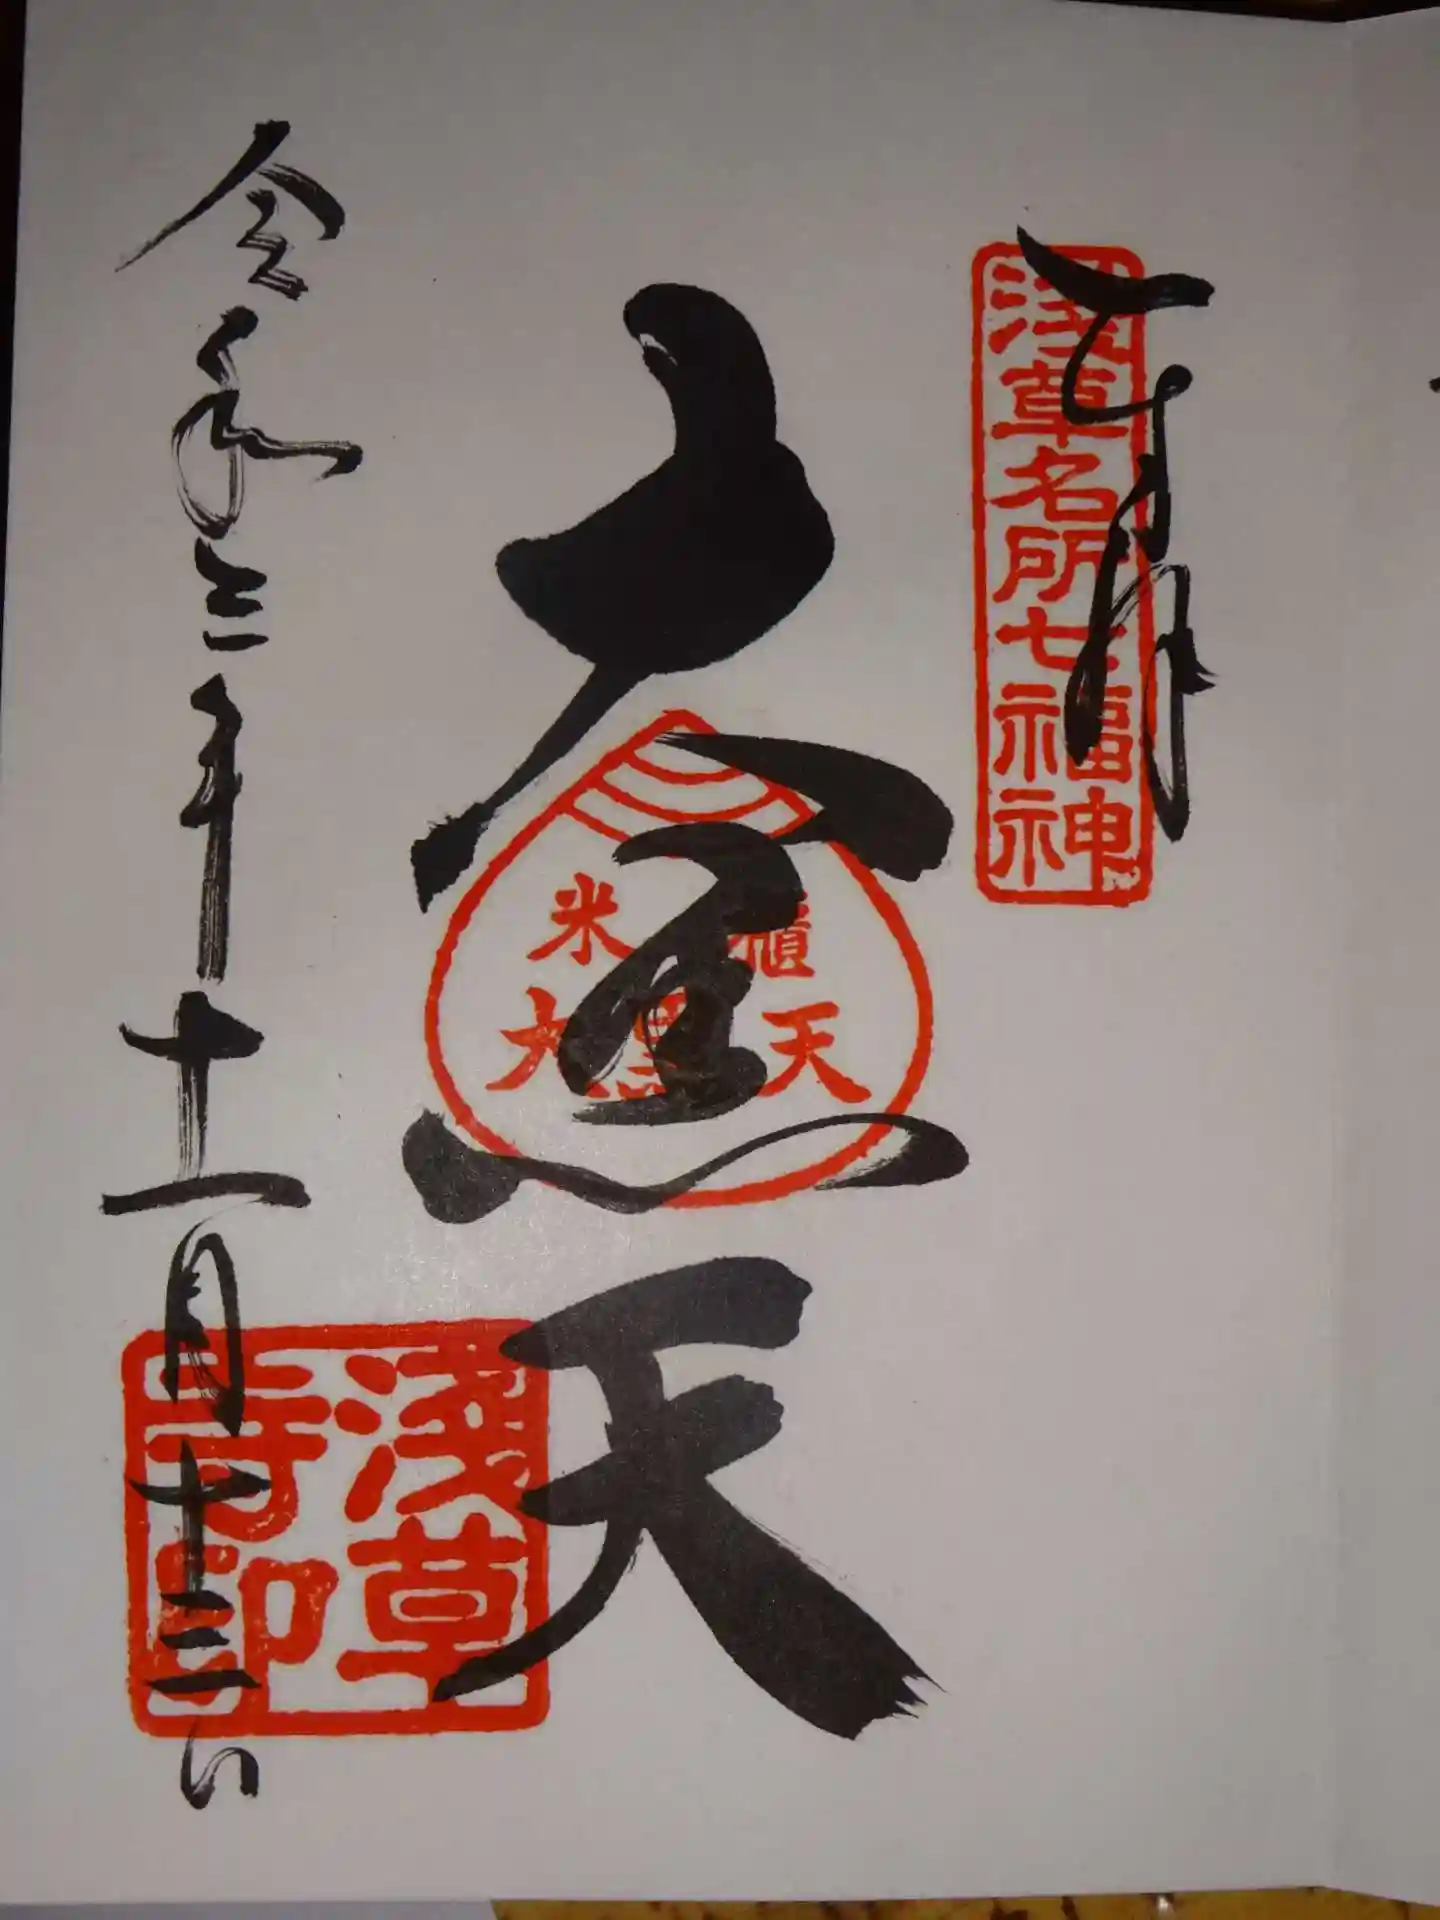 奉拝
浅草名所七福神
大黒天
米櫃
大黒天
令和三年十一月十三日
淺草
寺印